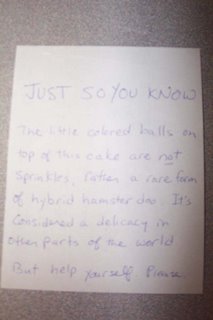 JUST SO YOU KNOW
The little colored balls on
top of this cake are not
Sprinkles, rather a rare form
of hybrid hamster doo. It's
Considered a delicacy in
other parts of the world
But help yourself. Please.